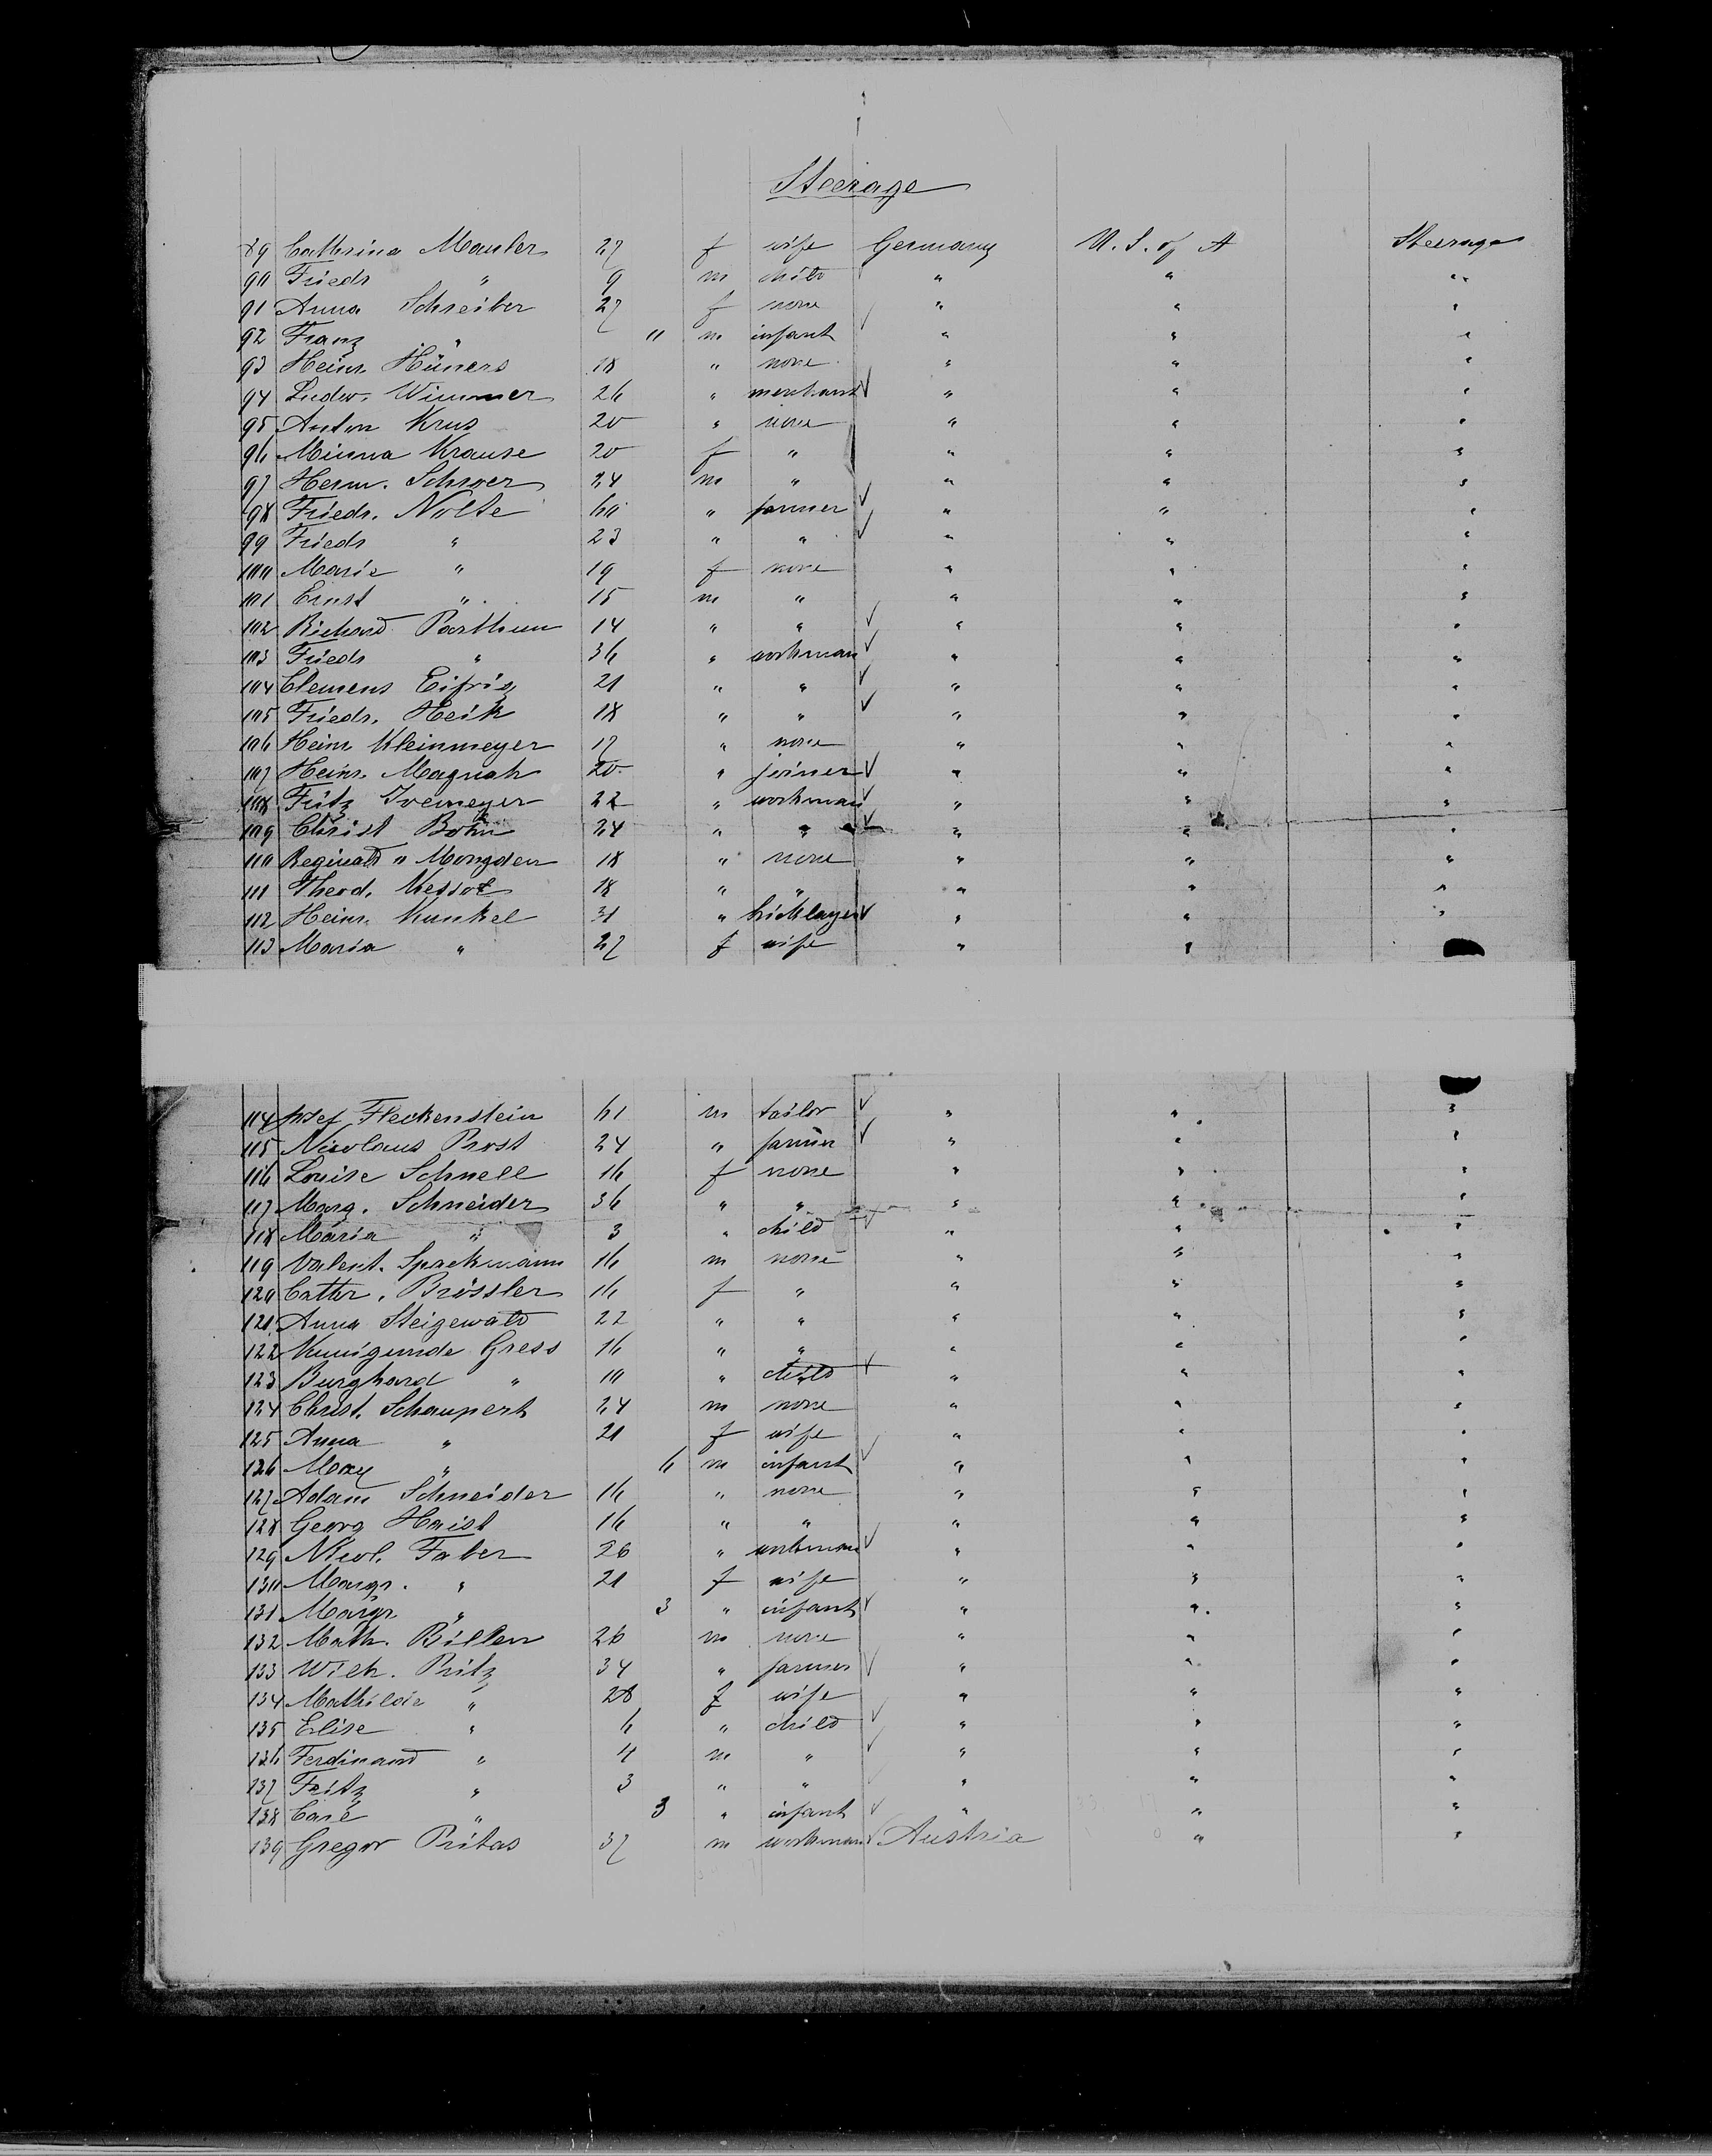 Steerage
89 Cathrina Mauler 27 f wife Germany U. S. of A Steerage
90 Friedr " 9 m child " " "
91 Anna Schreiber 27 f none " " "
92 Franz " 11 m infant " " "
93 Heinr. Hüners 18 " none " " "
94 Ludw. Wimmer 26 " merchant " " "
95 Anton Krus 20 " none " " "
96 Minna Krause 20 f " " " "
97 Herm. Schroer 24 m " " " "
98 Friedr. Nolte 60 " farmer " " "
99 Friedr " 23 " " " " "
100 Marie " 19 f none " " "
101 Ernst " 15 m " " " "
102 Richard Parthum 14 " " " " "
103 Friedr " 36 " workman " " "
104 Clemens Eifrig 21 " " " " "
105 Friedr. Heik 18 " " " " "
106 Heinr Kleinmeyer 17 " none " " "
107 Heinr. Magnah 20 " joiner " " "
108 Fritz Ivemeyer 22 " workman " " "
109 Christ Bohn 24 " " " " "
110 Reginald v Mongden 18 " none " " "
111 Theod. Kessot 18 " " " " "
112 Heinr. Kunkel 31 " bricklayer " " "
113 Maria " 27 f wife " "
114 Josef Fleckenstein 61 m tailor " " "
115 Nicolaus Prost 24 " farmer " " "
116 Louise Schnell 16 f none " " "
117 Marg. Schneider 36 " " " " "
118 Maria " 3 " child " " "
119 Valent. Spackmann 16 m none " " "
120 Cathr. Brössler 16 f " " " "
121 Anna Steigewald 22 " " " " "
122 Kunigunde Gress 16 " " " " "
123 Burghard " 10 " child " " "
124 Christ. Schaupert 24 m none " " "
125 Anna " 21 f wife " " "
126 Max " 6 m infant " " "
127 Adam Schneider 16 " none " " "
128 Georg Haist 16 " " " " "
129 Nicol. Faber 26 " workman " " "
130 Margr. " 21 f wife " " "
131 Margr " 3 " infant " " "
132 Math. Billen 26 m none " " "
133 Wilh. Pritz 34 " farmer " " "
134 Mathilde " 28 f wife " " "
135 Elise " 6 " child " " "
136 Ferdinand " 4 m " " " "
137 Fritz " 3 " " " " "
138 Carl " 3 " infant " " "
139 Gregor Pritas 37 m workman Austria " "